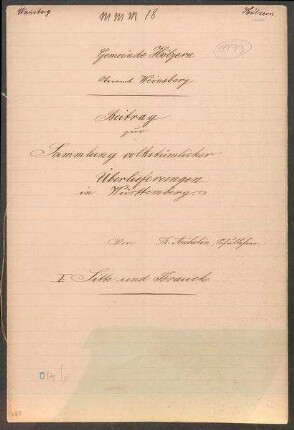 Weinsberg
Hölzern
18
Gemeinde Hölzern
Oberamt Weinsberg
Beitrag
zur
Sammlung volkstümlicher
Überlieferungen
in Württemberg
Von
I Sitte und Brauch